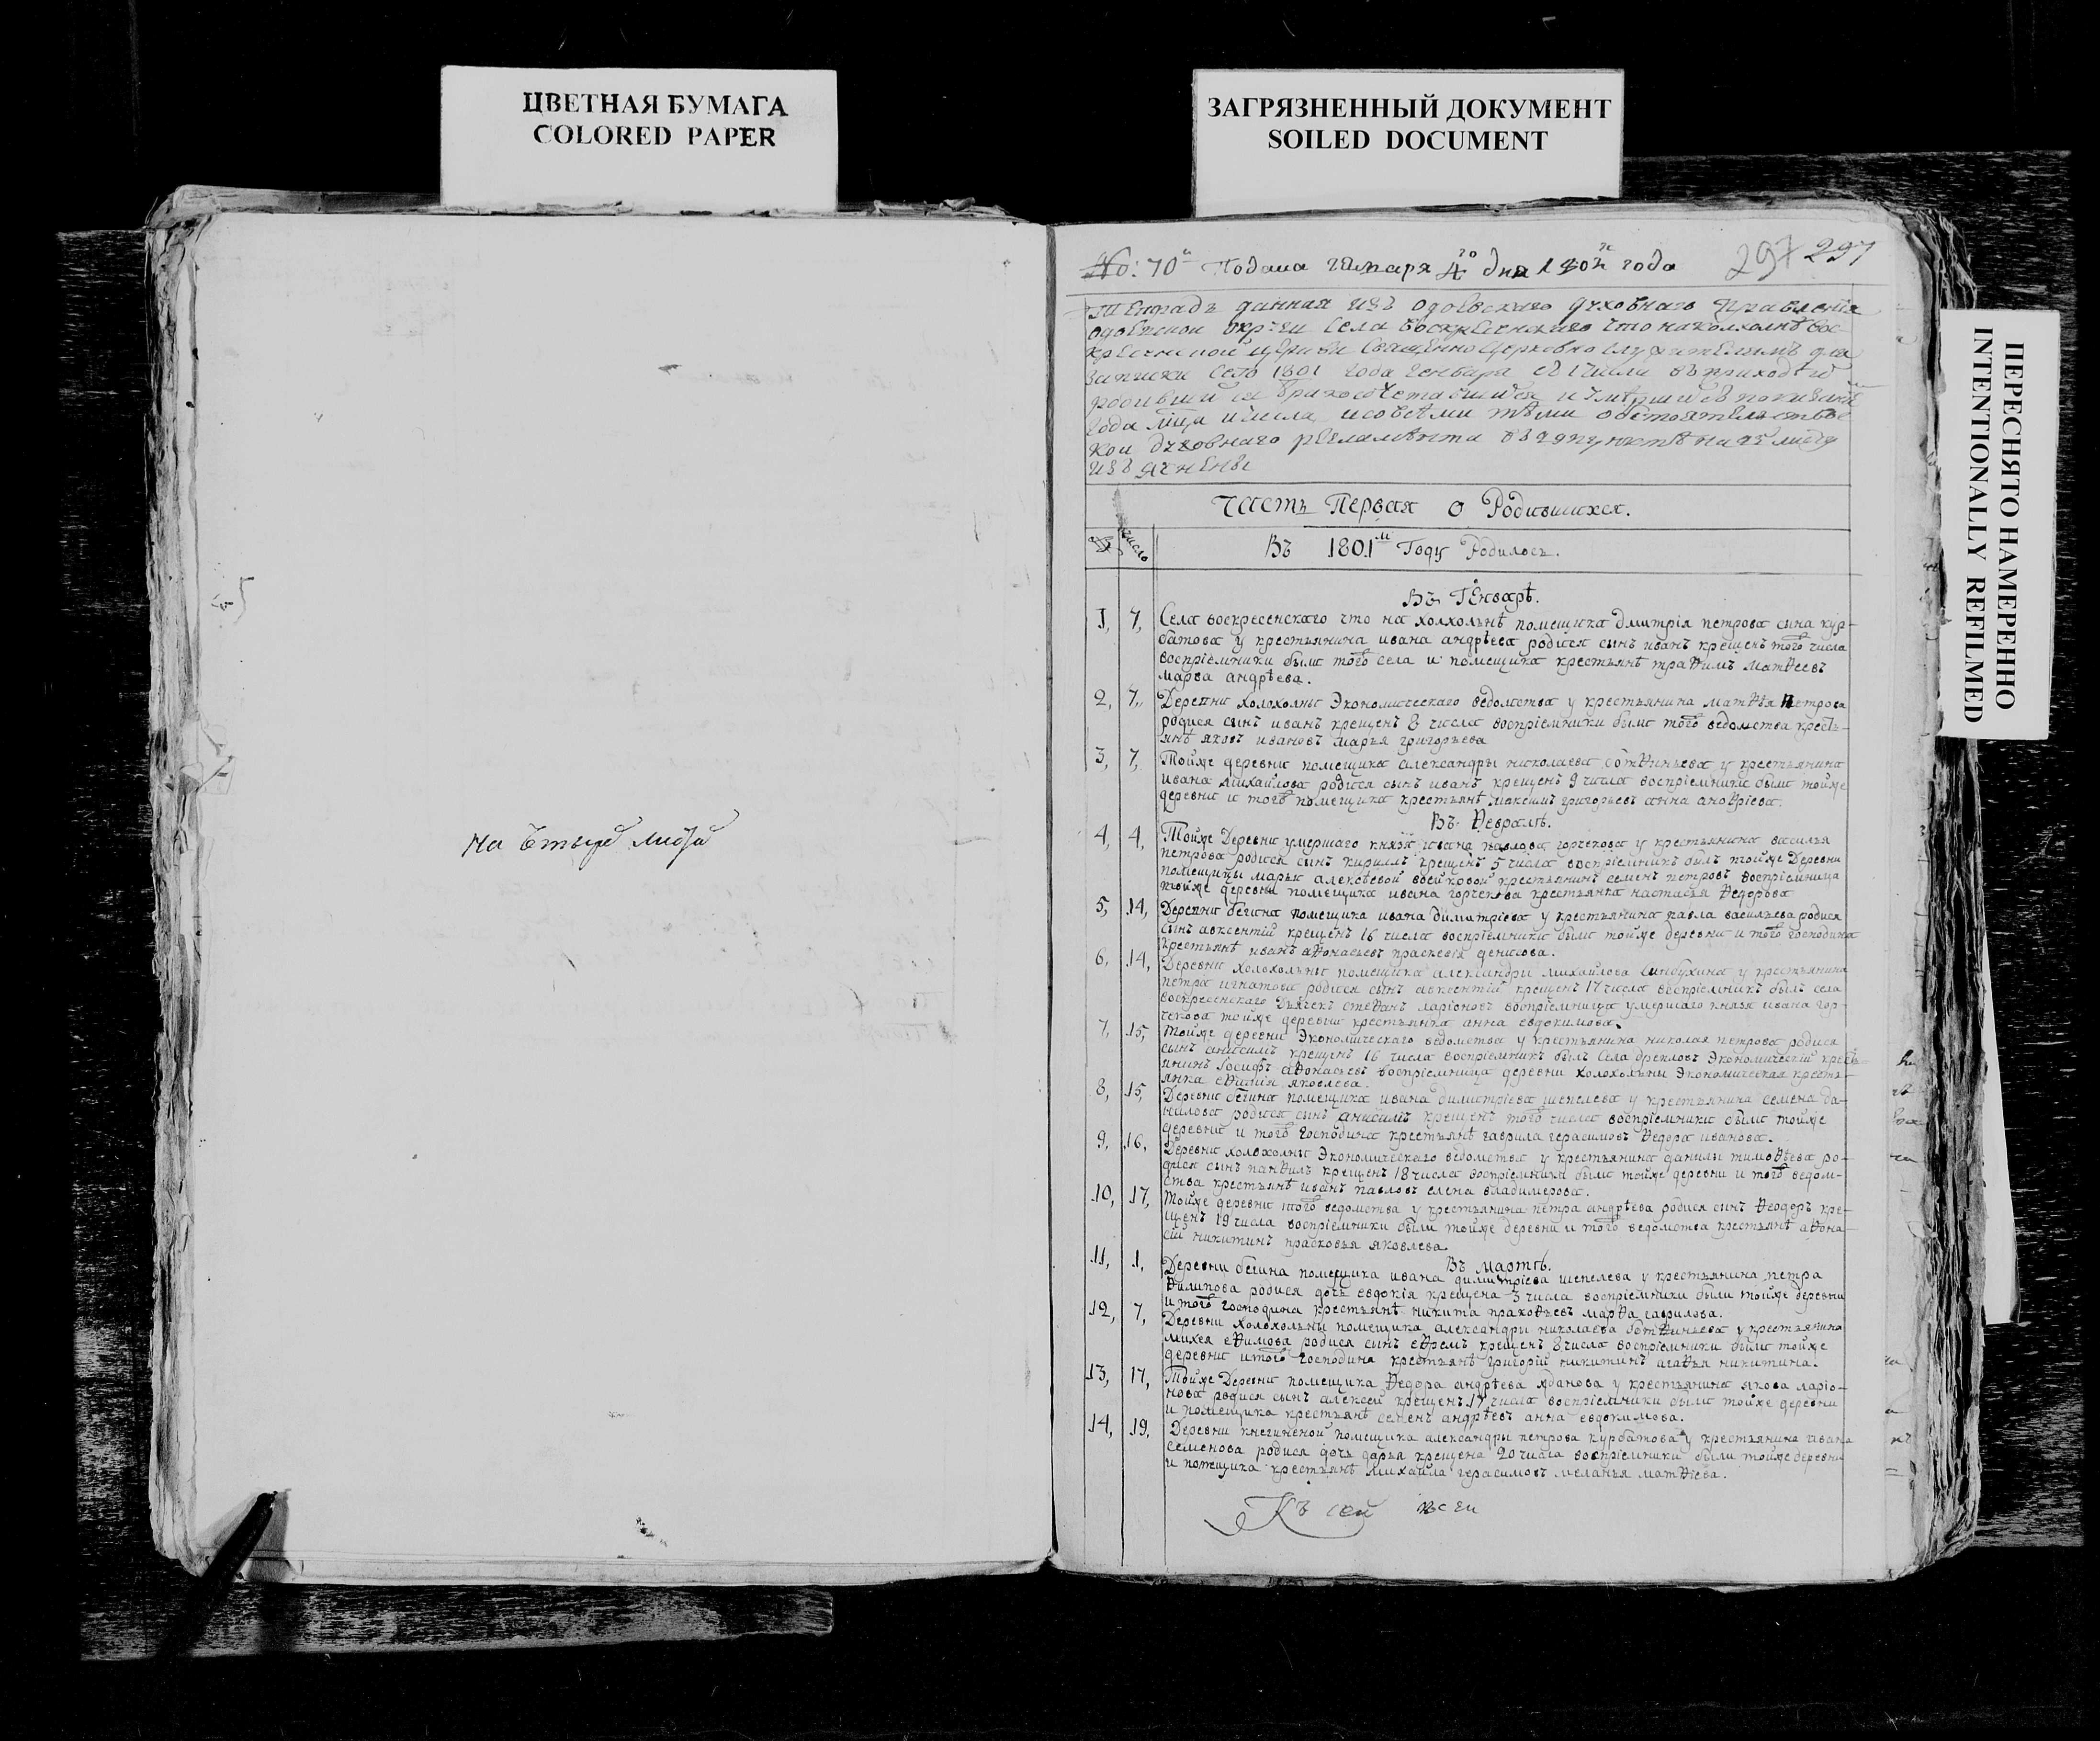 ЦВЕТНАЯ БУМАГА
COLORED PAPER
ЗАГРЯЗНЕННЫЙ ДОКУМЕНТ
SOILED DOCUMENT
ПЕРЕСНЯТО НАМЕРЕННО
INTENTIONALLY REFILMED
На Four листа
No: 70 Подана генваря 4го дня года
297 297
Тетрадь данная изъ одоевскаго духовнаго правленія
одоевской округи села воскресенскаго что на холхолнѣ вос-
кресенской церкви священноцерковнослужителямъ для
записки сего 1801 года генваря съ 1 числа въ приходѣ
года мца и числа, и со всѣми тѣми обстоятельствы
кои духовнаго регламента
изъяснены
Часть Первая о Родившихся.
число
Въ 1801м Году Родилось.
Въ Генварѣ.
1, 7, Села воскресенскаго что на холхольнѣ помещика дмитрія петрова сина кур-
батова у крестьянина ивана андрѣева родися сынъ иванъ крещенъ того числа
воспріемники были того села и помещика крестьянѣ траѳимъ матѳеевъ
марѳа андрѣева.
2, 7, Деревни холохолны Экономическаго ведомства у крестьянина матѳѣя петрова
родися сынъ иванъ крещенъ 8 числа воспріемники были того ведомства кресть-
янѣ яковъ ивановъ марья григорьева
3, 7, Тойже деревни помещика александры николаева ботѳиньева у крестьянина
ивана михайлова родися сынъ иванъ крещенъ 9 числа воспріемники были тойже
деревни и того помещика крестьянѣ максимъ григорьевъ анна
Въ Ѳевралѣ.
4, 4, Тойже Деревни умершаго князя ивана павлова горчекова у крестьянина василья
петрова родися сынъ кирилъ крещенъ 5 числа воспріемникъ былъ тойже Деревни
помещицы марьи алексѣевой воейковой крестьянинъ семенъ петровъ воспріемница
тойже деревни помещика ивана горчекова крестьянка настасья ѳедорова
5, 14, Деревни бегина помещика ивана димитріева у крестьянина павла васильева родися
сынъ авксентій крещенъ 16 числа воспріемники были тойже деревни и того господина
крестьянѣ иванъ аѳонасьевъ праскевія денисова.
6, 14, Деревни холохолны помещика александры михайлова у крестьянина
петра игнатова родися сынъ авксентій крещенъ 17 числа воспріемникъ былъ села
воскресенскаго дьячекъ стеѳанъ ларіоновъ воспріемница умершаго князя ивана гор-
чекова тойже деревни крестьянка анна евдокимова.
7, 15, Тойже деревни Экономическаго ведомства у крестьянина николая петрова родися
сынъ анисимъ крещенъ 16 числа воспріемникъ былъ села Экономическій кресть-
янинъ Іосифъ аѳонасьевъ воспріемница деревни холохольны Экономическая кресть-
янка яковлева.
8, 15, Деревни бегина помещика ивана димитріева шепелева у крестьянина семена да-
нилова родися сынъ анисимъ крещенъ того числа воспріемники были тойже
деревни и того господина крестьянѣ гаврила герасимовъ ѳедора иванова.
9, 16, Деревни холохолны Экономическаго ведомства у крестьянина данилы тимоѳѣева ро-
дися сынъ панѳилъ крещенъ 18 числа воспріемники были тойже деревни и того ведом-
ства крестьянѣ иванъ павловъ елена владимерова.
10, 17, Тойже деревни и того ведомства у крестьянина петра андрѣева родися сынъ Ѳеодоръ кре-
щенъ 19 числа воспріемники были тойже деревни и того ведомства крестьянѣ аѳона-
сій никитинъ прасковья яковлева
Въ мартѣ.
11, 1, Деревни бегина помещика ивана димитріева шепелева у крестьянина петра
Ѳилипова родися дочь евдокія крещена 3 числа воспріемники были тойже деревни
и того господина крестьянѣ никита праховьевъ марѳа гаврилова.
12, 7, Деревни холохольны помещика александры николаева ботѳиньева у крестьянина
михея еѳимова родися сынъ еѳремъ крещенъ 8 числа воспріемники были тойже
деревни и того господина крестьянѣ григорій никитинъ агаѳья никитина.
13, 17, Тойже Деревни помещика Ѳедора андрѣева жданова у крестьянина якова ларіо-
нова родися сынъ алексей крещенъ 17 числа воспріемники были тойже деревни
и помещика крестьянѣ семенъ андрѣевъ анна евдокимова.
14, 19, Деревни княгининой помещика александры петрова курбатова у крестьянина ивана
семенова родися дочь дарья крещена 20 числа воспріемники были тойже деревни
и помещика крестьянѣ михайла герасимовъ меланья матѳѣева.
Къ сей